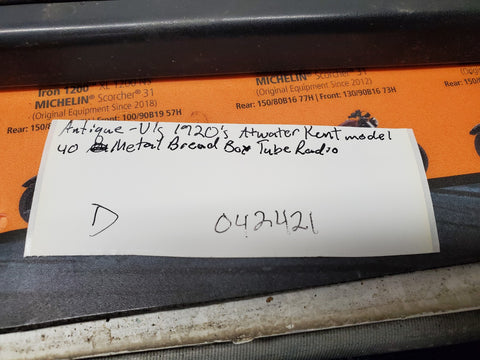 Iron 1200™ XL 1200 NS
MICHELIN® Scorcher® 31
(Original Equipment Since 2018)
Rear: 150/80 Front: 100/90B19 57H
MICHELIN® Scorcher® 31
(Original Equipment Since 2012)
Rear: 150/80B16 77H | Front: 130/90B16 73H
Antique - V/s 1920's Atwater Kent model
40 Metail Bread Box Tube Radio
D 042421